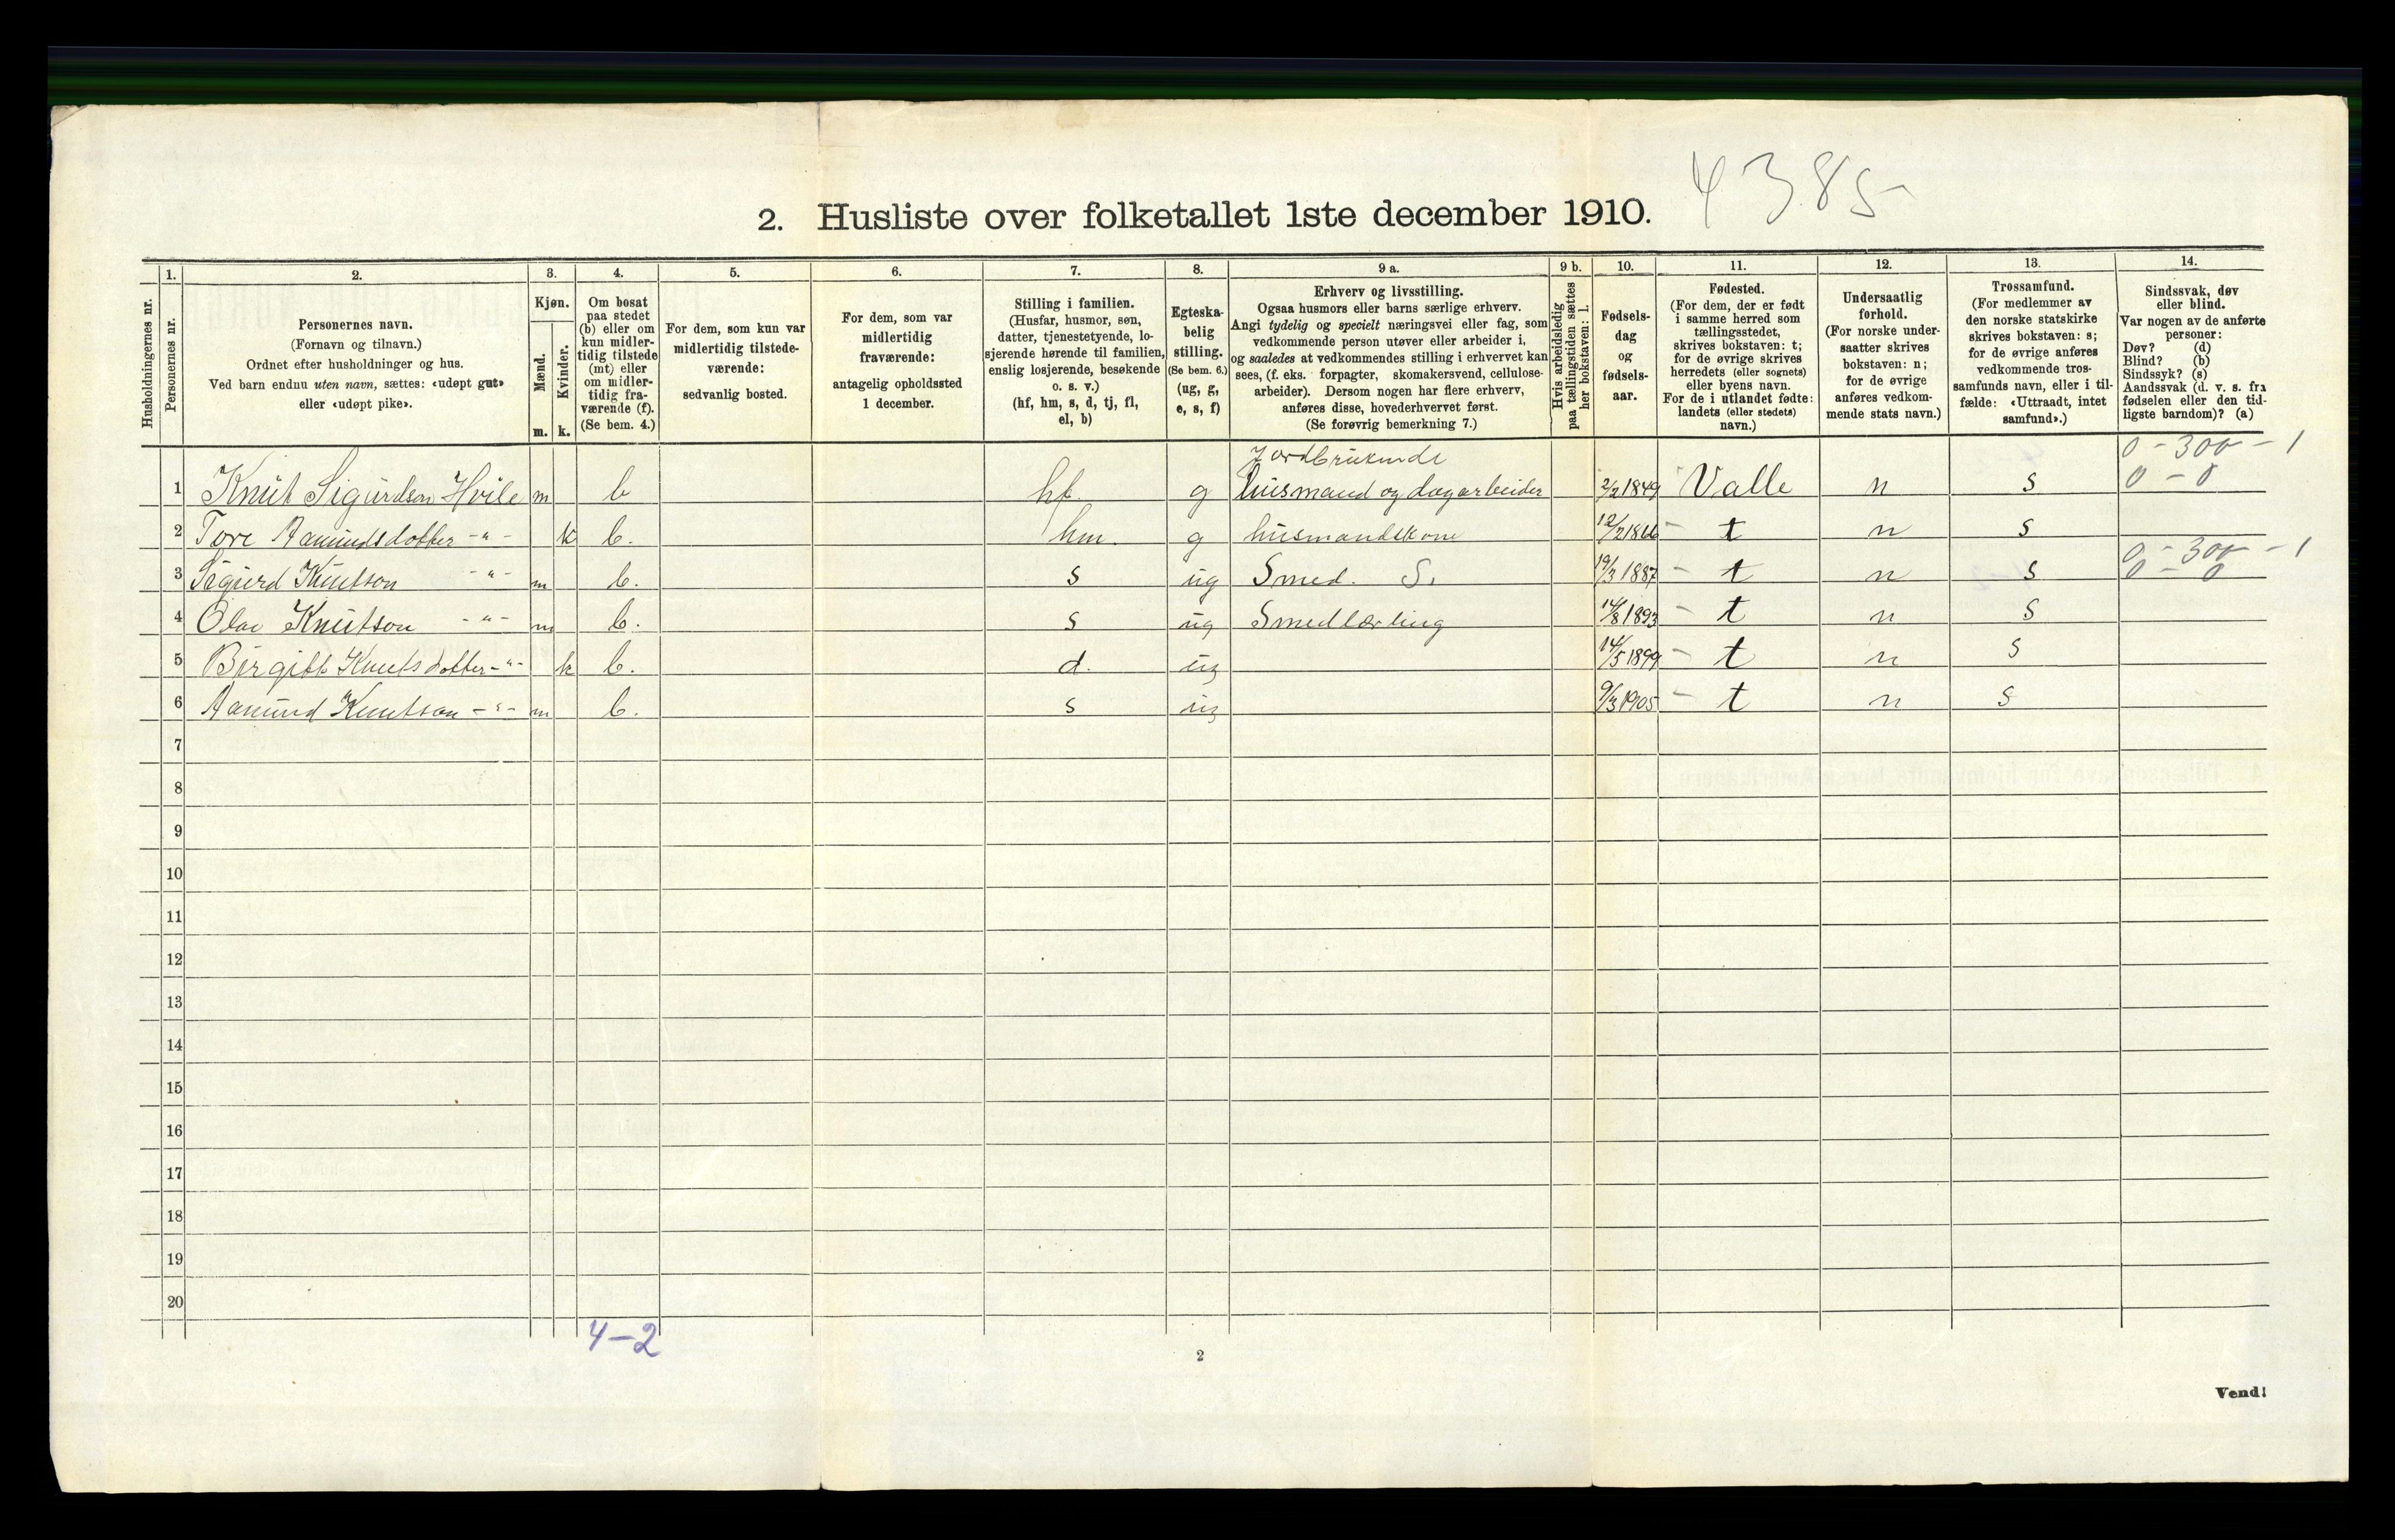 4385
2. Husliste over folketallet 1ste december 1910.
Husholdningernes nr.
1.
Personernes nr.
2.
Personernes navn.
(Fornavn og tilnavn.)
Ordnet efter husholdninger og hus.
Ved barn endnu uten navn, sættes: «udøpt gut»
eller «udøpt pike».
3.
Kjøn.
Mænd.
m.
Kvinder.
k.
4.
Om bosat
paa stedet
(b) eller om
kun midler-
tidig tilstede
(mt) eller
om midler-
tidig fra-
værende (f).
(Se bem. 4.)
5.
For dem, som kun var
midlertidig tilstede-
værende:
sedvanlig bosted.
6.
For dem, som var
midlertidig
fraværende:
antagelig opholdssted
1 december.
7.
Stilling i familien.
(Husfar, husmor, søn,
datter, tjenestetyende, lo-
sjerende hørende til familien,
enslig losjerende, besøkende
o. s. v.)
(hf, hm, s, d, tj, fl,
el, b)
8.
Egteska-
belig
stilling.
(Se bem. 6.)
(ug, g,
e, s, f)
9 a.
Erhverv og livsstilling.
Ogsaa husmors eller barns særlige erhverv.
Angi tydelig og specielt næringsvei eller fag, som
vedkommende person utøver eller arbeider i,
og saaledes at vedkommendes stilling i erhvervet kan
sees, (f. eks. forpagter, skomakersvend, cellulose-
arbeider). Dersom nogen har flere erhverv,
anføres disse, hovederhvervet først.
(Se forøvrig bemerkning 7.)
9 b.
Hvis arbeidsledig
paa tællingstiden sættes
her bokstaven: l.
10.
Fødsels-
dag
og
fødsels-
aar.
11.
Fødested.
(For dem, der er født
i samme herred som
tællingsstedet,
skrives bokstaven: t;
for de øvrige skrives
herredets (eller sognets)
eller byens navn.
For de i utlandet fødte:
landets (eller stedets)
navn.)
12.
Undersaatlig
forhold.
(For norske under-
saatter skrives
bokstaven: n;
for de øvrige
anføres vedkom-
mende stats navn.)
13.
Trossamfund.
(For medlemmer av
den norske statskirke
skrives bokstaven: s;
for de øvrige anføres
vedkommende tros-
samfunds navn, eller i til-
fælde: «Uttraadt, intet
samfund».)
14.
Sindssvak, døv
eller blind.
Var nogen av de anførte
personer:
Døv? (d)
Blind? (b)
Sindssyk? (s)
Aandssvak (d. v. s. fra
fødselen eller den tid-
ligste barndom)? (a)
Jordbrukende 0 - 300 - 1
1 Knut Sigurdson Hvile m b hf. g husmand og dagarbeider 2/2 1849 Valle n s 0 - 0
2 Tore Aamundsdotter -"- k b. hm. g husmandskone 12/2 1866 - t n s
0 - 300 - 1
3 Sigurd Knutson -"- m b. s ug Smed. S. 19/3 1887 - t n s 0 - 0
4 Olav Knutson -"- m b. s ug Smedlærling 14/8 1893 - t n s
5 Birgitt Knutsdotter -"- k b. d. ug 14/5 1899 - t n s
6 Aamund Knutson -"- m b. s ug 9/3 1905 - t n s
7
8
9
10
11
12
13
14
15
16
17
18
19
20
4-2
2
Vend!